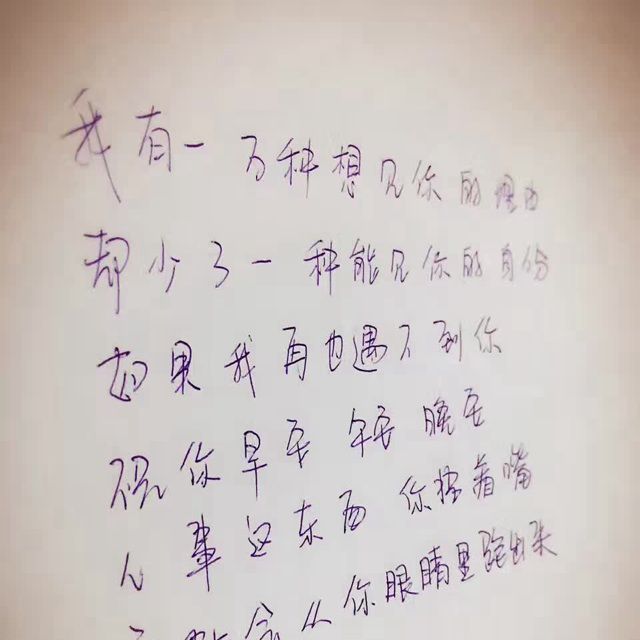 我有一万种想见你的理由
却少了一种能见你的身份
如果我再也遇不到你
祝你早安 午安 晚安
心事这东西 你捂着嘴
会从你眼睛里跑出来